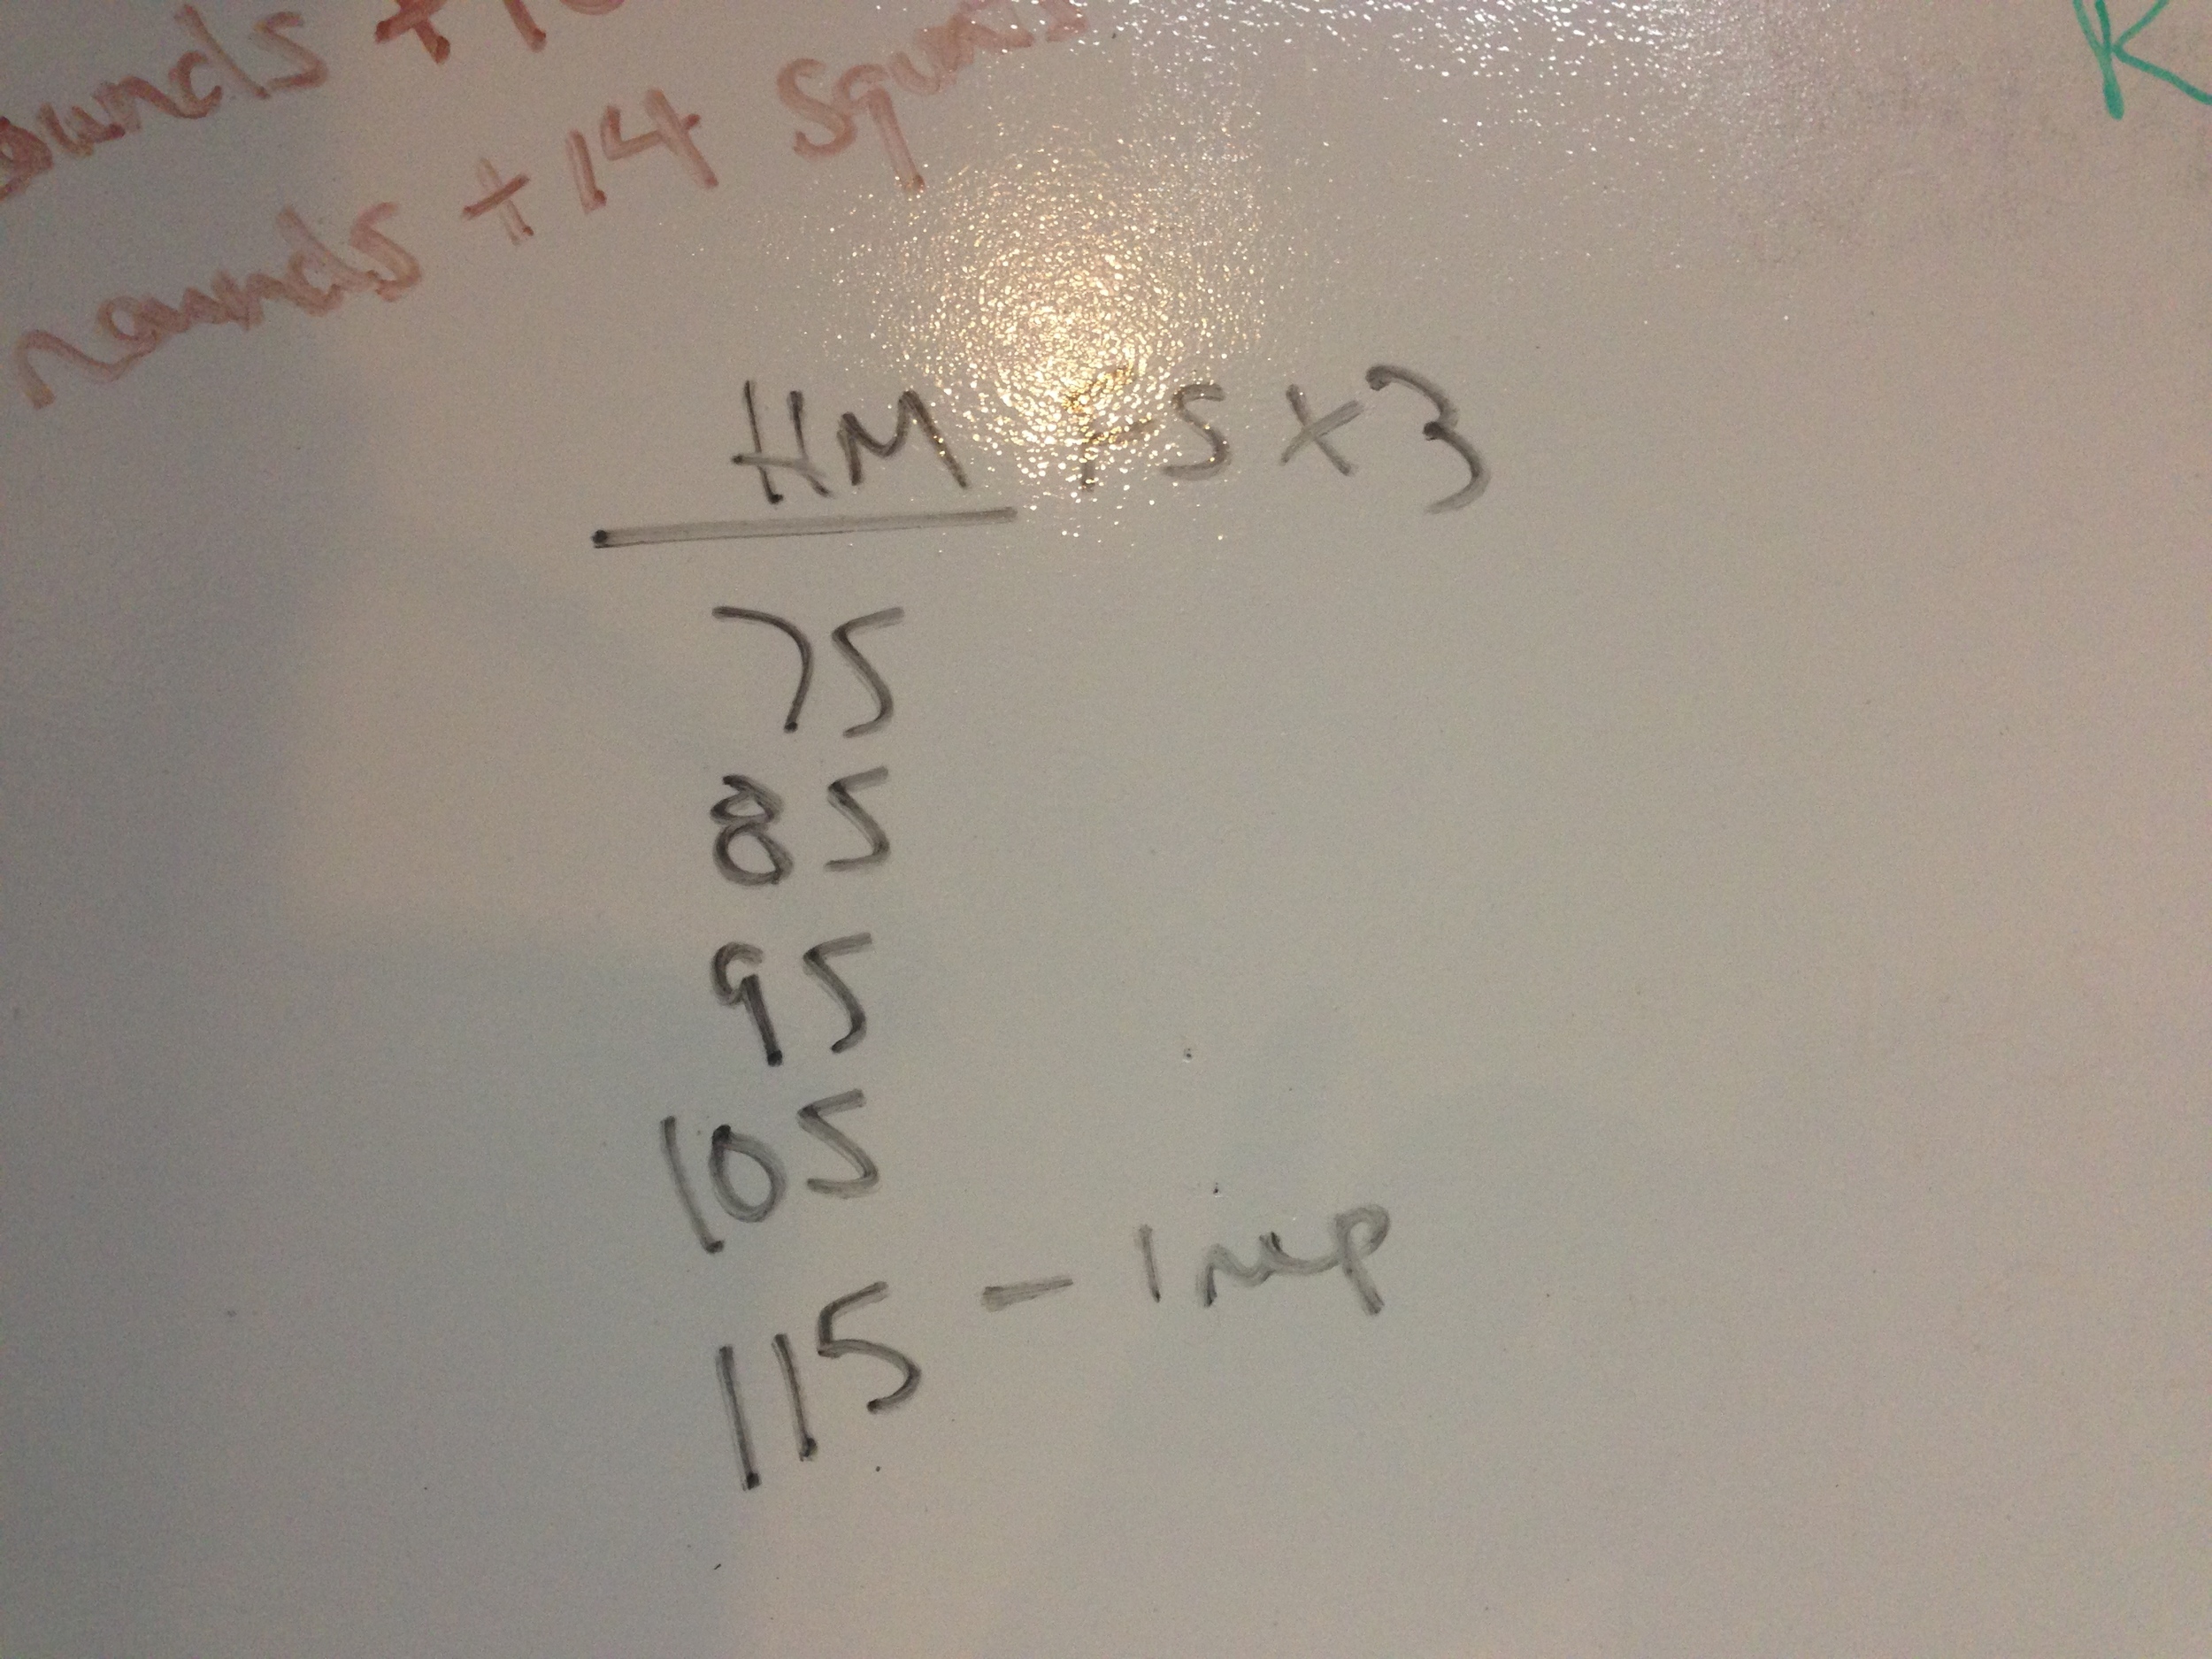 rounds +14 squats
HM FS x3
75
85
95
105
115 - 1 rep